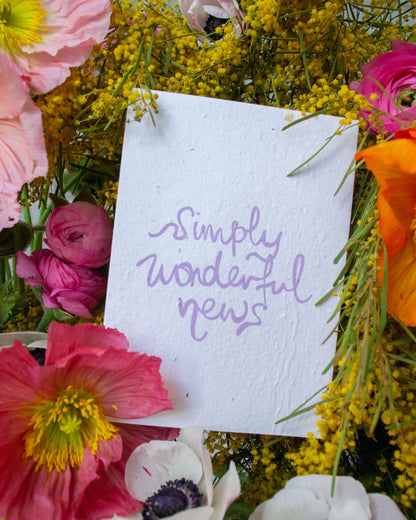 Simply
wonderful
news